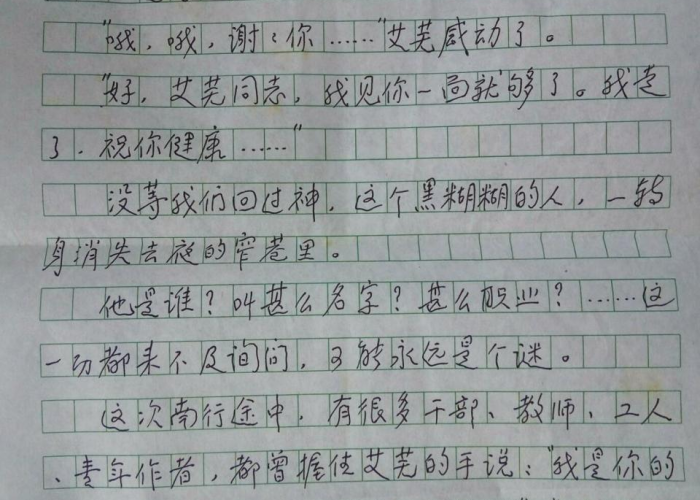 “哦，哦，谢谢你……”艾芜感动了。
“好，艾芜同志，我见你一面就够了。我走
了．祝你健康……”
没等我们回过神，这个黑糊糊的人，一转
身消失去夜的窄巷里。
他是谁？叫甚么名字？甚么职业？……这
一切都来不及询问，只能永远是个谜。
这次南行途中，有很多干部、教师、工人
、青年作者，都曾握住艾芜的手说：“我是你的